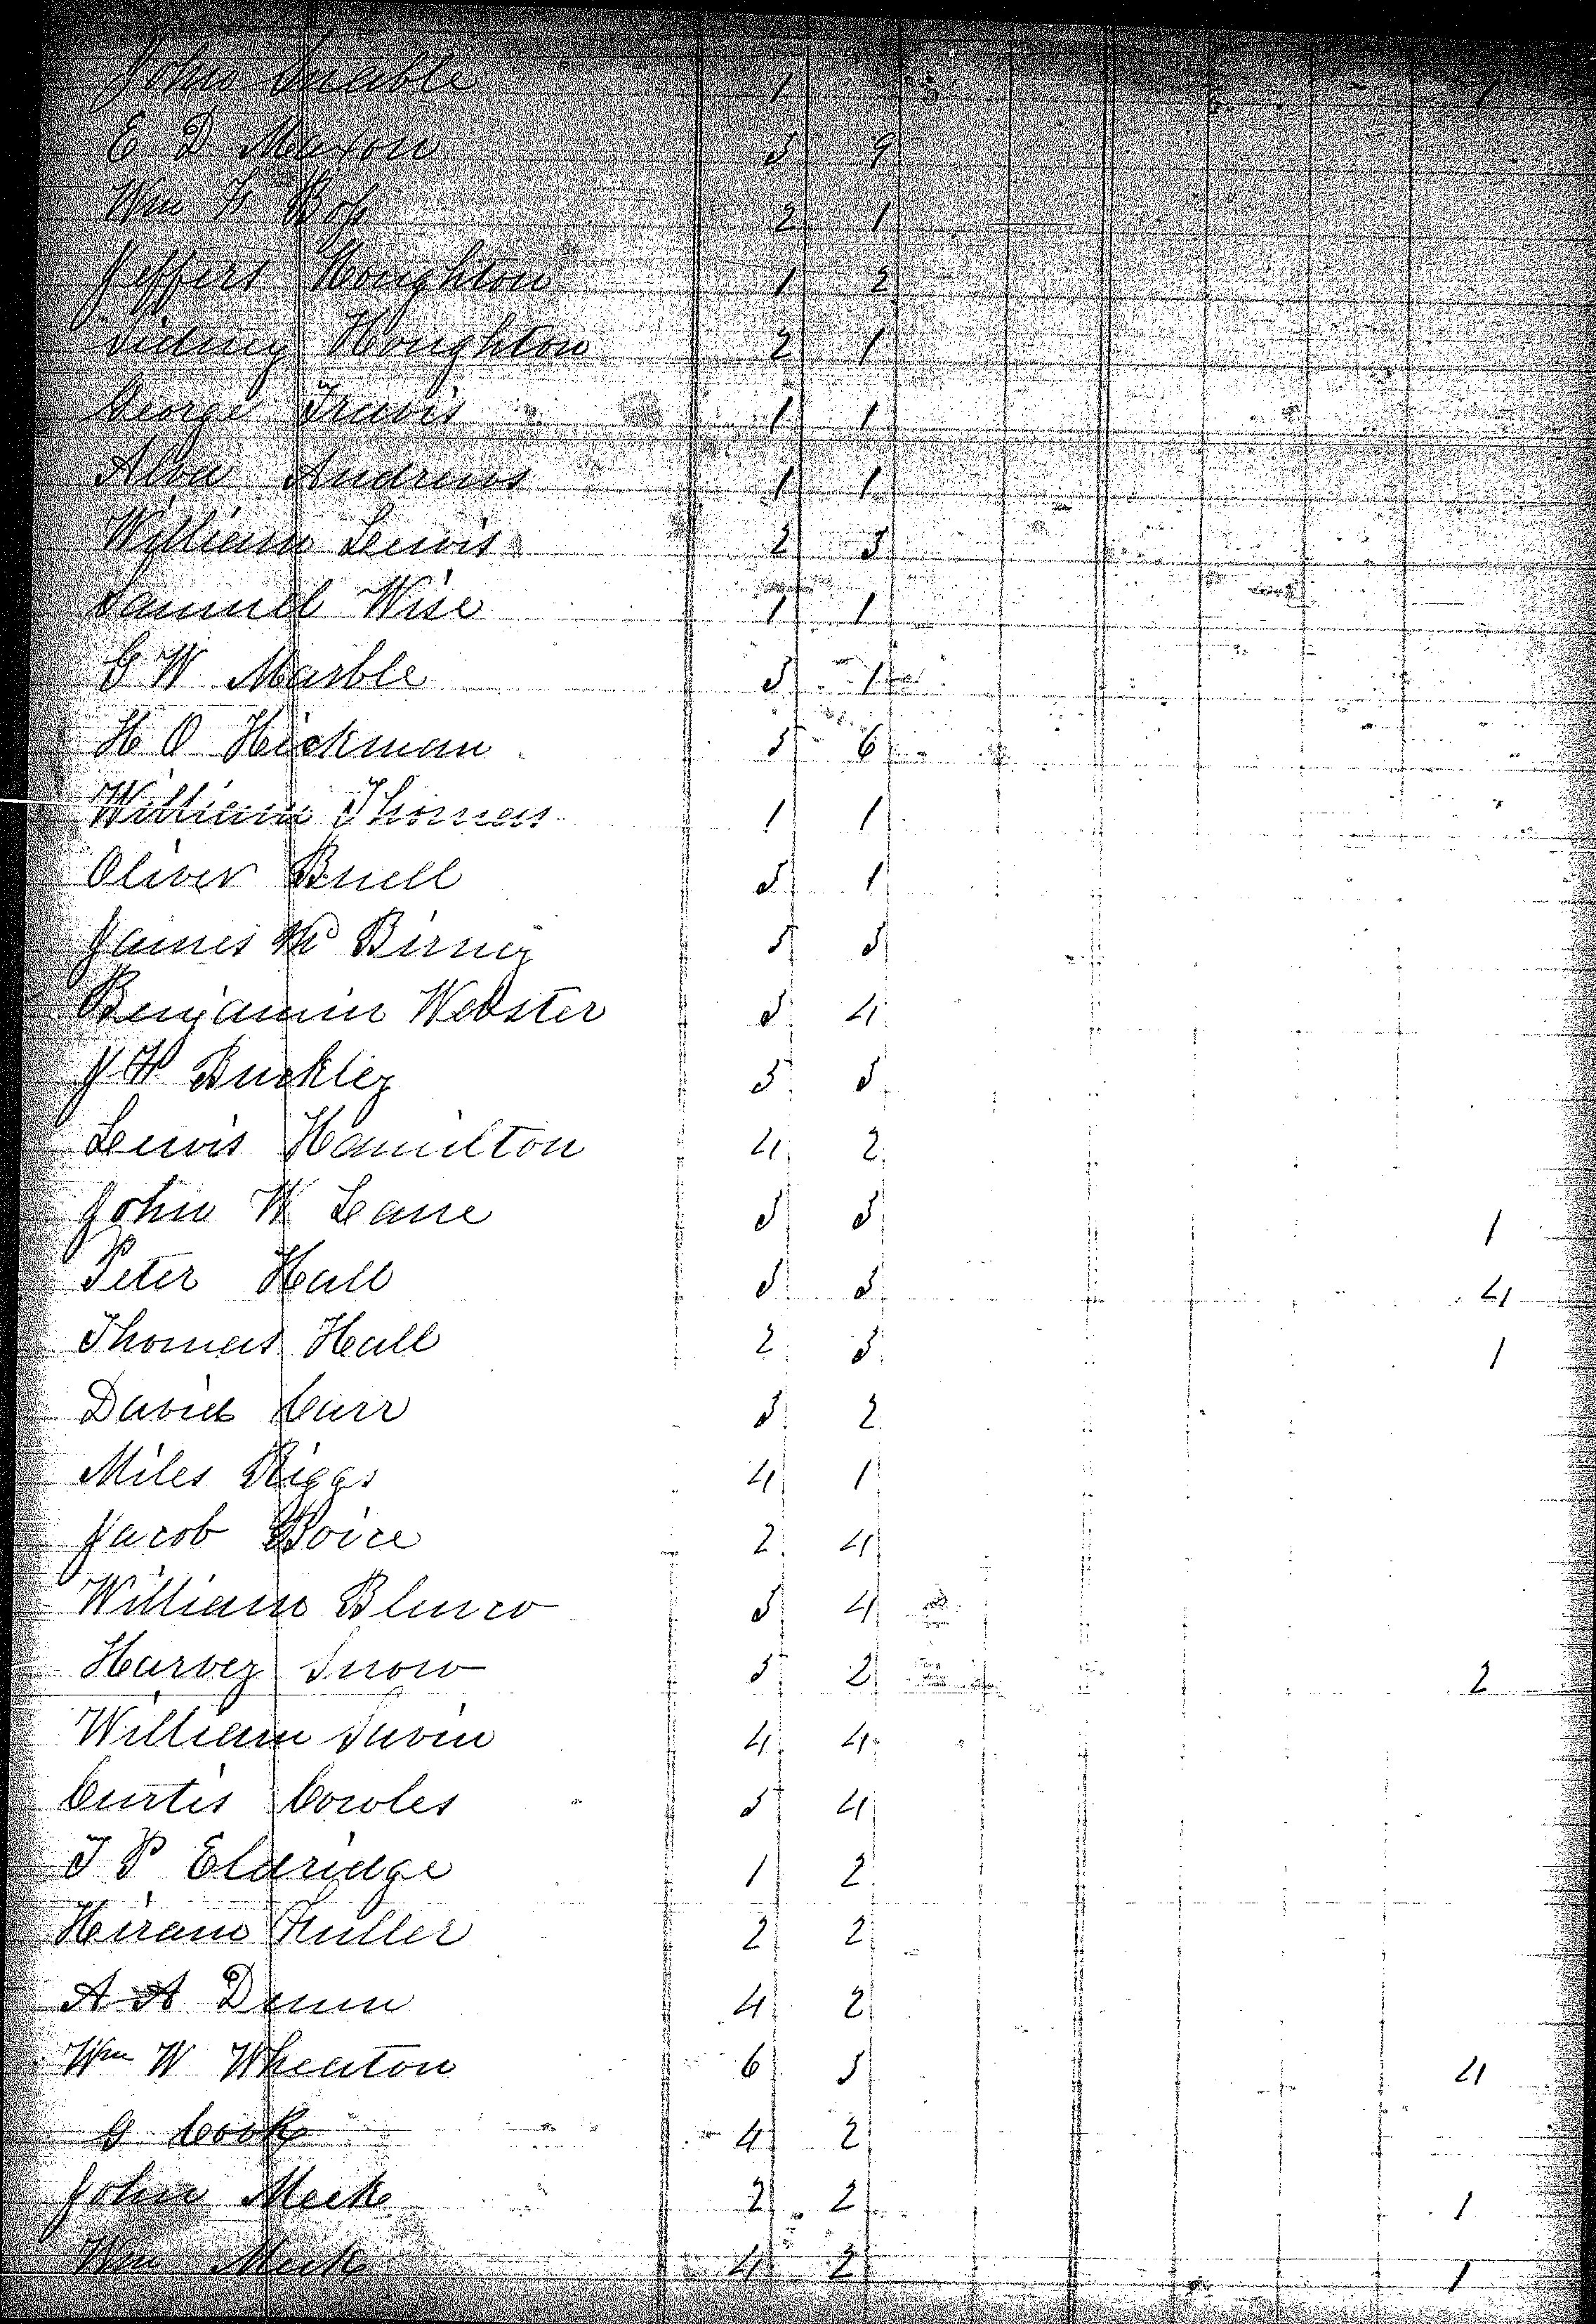 John 1 1
E D Maxon 3 9
Wm H Boss 2 1
Jeffers Houghton 1 2
Sidney Houghton 2 1
George Travis 1 1
Alva Andrews 1 1
William Lewis 2 3
Samuel Wise 1 1
G W Marble 3 1
H O Hickman 5 6
William Thomas 1 1
Oliver Buell 3 1
James Birney 5 3
Benjamin Webster 3 4
J H Buckley 5 3
Lewis Hamilton 4 2
John W Lane 3 3 1
Peter Hall 3 3 4
Thomas Hall 2 3 1
David Carr 3 2
Miles Riggs 4 1
Jacob Boice 2 4
William Blenco 3 4
Harvey Snow 5 2 2
William Savin 4 4
Curtis Cowles 5 4
T P Eldridge 1 2
Hiram Fuller 2 2
A A Dunn 4 2
Wm W Wheaton 6 3 4
G Cook 4 2
John Meek 2 2 1
Wm Meek 4 2 1